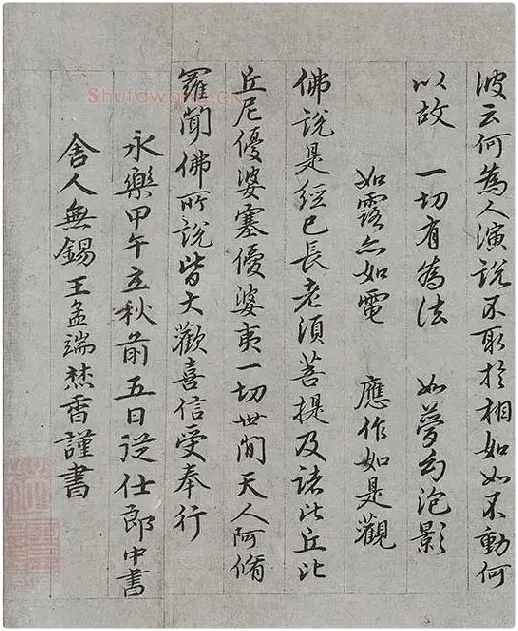 彼云何為人演說不取於相如如不動何
以故 一切有為法 如夢幻泡影
如露亦如電 應作如是觀
佛說是經已長老須菩提及諸比丘比
丘尼優婆塞優婆夷一切世間天人阿脩
羅聞佛所說皆大歡喜信受奉行
永樂甲午立秋前五日從仕郎中書
舍人無錫王孟端焚香謹書
Shufawang.CN